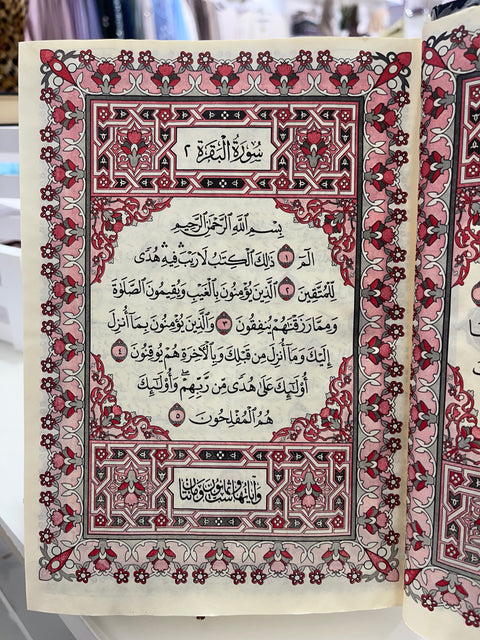 سُورَةُ الْبَقَرَةِ ٢
بِسْمِ اللَّهِ الرَّحْمَنِ الرَّحِيمِ
الٓمٓ ١ ذَٰلِكَ الْكِتَٰبُ لَا رَيْبَ ۛ فِيهِ ۛ هُدًى
لِلْمُتَّقِينَ ٢ الَّذِينَ يُؤْمِنُونَ بِالْغَيْبِ وَيُقِيمُونَ الصَّلَوٰةَ
وَمِمَّا رَزَقْنَٰهُمْ يُنْفِقُونَ ٣ وَالَّذِينَ يُؤْمِنُونَ بِمَا أُنْزِلَ
إِلَيْكَ وَمَا أُنْزِلَ مِنْ قَبْلِكَ وَبِالْآخِرَةِ هُمْ يُوقِنُونَ ٤
أُولَٰئِكَ عَلَىٰ هُدًى مِنْ رَبِّهِمْ ۖ وَأُولَٰئِكَ
هُمُ الْمُفْلِحُونَ ٥
وآياتها ست وثمانون ومائتان